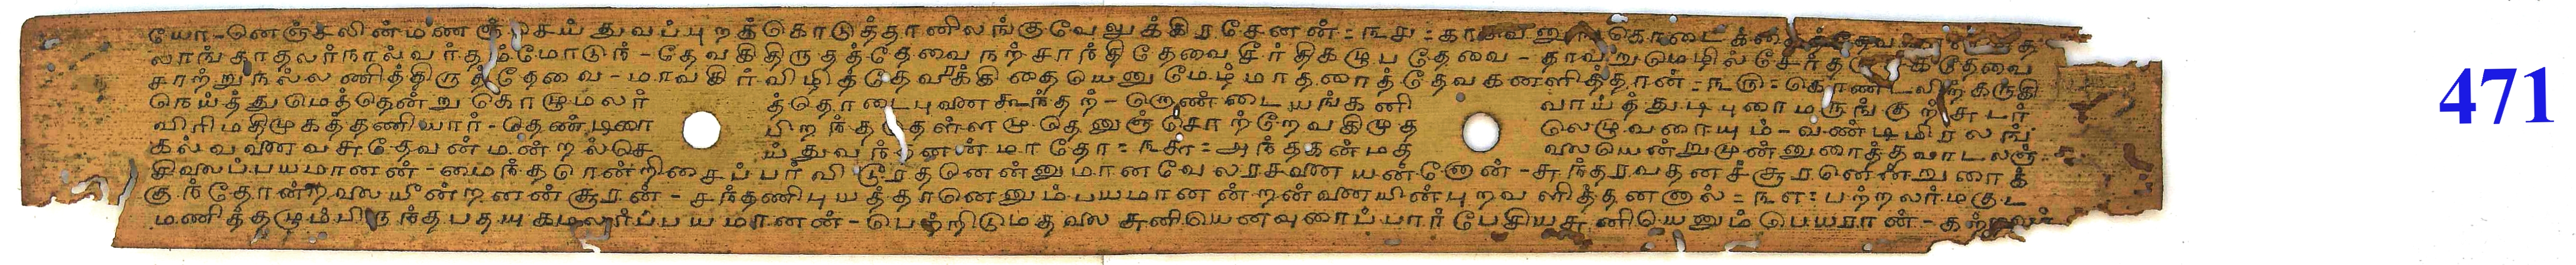 யோ-னெஞ்சலின்மண ஞ்செய் துவப்புறக்கொடுத்தானிலங்குவேலுக்கிரசேனன்=௩௪=
லாங்காதலர்நால்வர்தம்மோடுந்-தேவகிதிருதத்தேவைநற்சாந்திதேவைசீர்திகழுபதேவை-
சாற்றுநல்லணித்திருத்தேவை-மாவகிர்விழித்தேவரக்கிதையெனுமேழ்மாதரைத்தேவகனளித்தான்=௩௫=கொண்டலிற்கருகி
நெய்த்துமெத்தென்றுகொழுமலர் த்தொடைபுனைகூந்தற்-றொண்டையங்கனி வாய்த்துடிபுரைமருங்குற்சுடர்
விரிமதிமுகத்தணியார்-தெண்டிரை பிறந்ததெள்ளமுதெனுஞ்சொற்றேவகிமுத லெழுவரையும்-வண்டிமிரலங்
கல்வனைவசுதேவன்மன்றல்செ ய்துவந்தனன்மாதோ=௩௬=அந்தகன்மத் வலையென்றுமுன்னுரைத்தவாடலஞ்
சிலைப்பயமானன்-மைந்தரொன்றிசைப்பர்விடூரதனென்னுமானவேலரசனை யன்னோன்-சுந்தரவதனச்சூரனென்றுரைக்
குந்தோன்றலை யீன்றனன்சூரன்-சந்தணிபுயத்தானெனும்பயமானன்றன்வனையின்புறவளித்தனனால்=௩௭=பற்றலர்மகுட
மணித்தழும்பிருந்தபதயுகமலர்ப்பயமானன்-பெற்றிடும்தலை சுனியெனவுரைப்பார்பேசியசுனியெனும்பெயரான்-
471